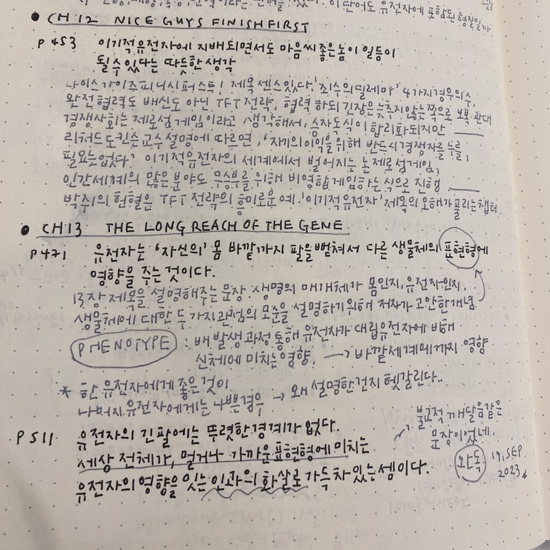 • CH 12 NICE GUYS FINISH FIRST
P 453 이기적유전자에 지배되면서도 마음씨 좋은놈이 일등이
될수 있다는 따뜻한 생각
나이스가이즈피니시퍼스트! 제목센스있다. '죄수의딜레마' 4가지경우의수,
완전협력도 배신도 아닌 TFT 전략, 협력하되긴장은늦추지않는쪽으로
경쟁사회는 제로섬게임이라고 생각해서, 승자독식이 합리화되지만
리처드도킨슨교수설명에 따르면, '자기의이익을위해 반드시경쟁자를
필요는없다' 이기적유전자의 세계에서 벌어지는 논제로섬게임,
인간세계의 많은분야도 무승부를 위해 비영합게임하는식으로 진행
박쥐의 헌혈은 TFT 전략의 흥미로운예. '이기적유전자' 제목의 오해가풀리는챕터
• CH 13 THE LONG REACH OF THE GENE
P 471 유전자는 '자신의' 몸 바깥까지 팔을뻗쳐서 다른 생물체의 표현형에
영향을 주는 것이다.
13장 제목을 설명해주는문장. 생명의 매개체가 몸인지, 유전자인지.
생물체에 대한 두가지관점의 모순을 설명하기위해 저자가 고안한개념
PHENOTYPE : 배발생과정통해 유전자가 대립유전자에 비해
신체에 미치는영향. → 바깥세계에까지 영향
* 한 유전자에게 좋은것이
나머지 유전자에게는 나쁜경우 → 왜 설명한건지 헷갈린다..
P 511 유전자의 긴팔에는 뚜렷한경계가 없다.
세상 전체가, 멀거나 가까운표현형에 미치는
유전자의 영향을 잇는 인과의 화살로 가득차있는셈이다.
불교적 깨달음같은
문장이었네.
완독 19, SEP
2023